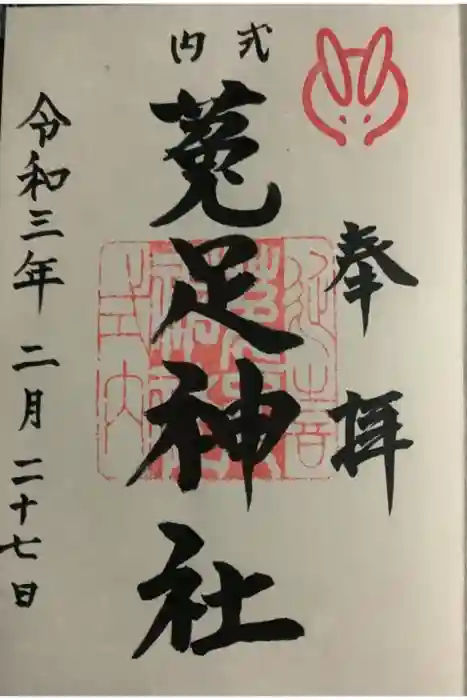 奉拝
式内
菟足神社
令和三年二月二十七日